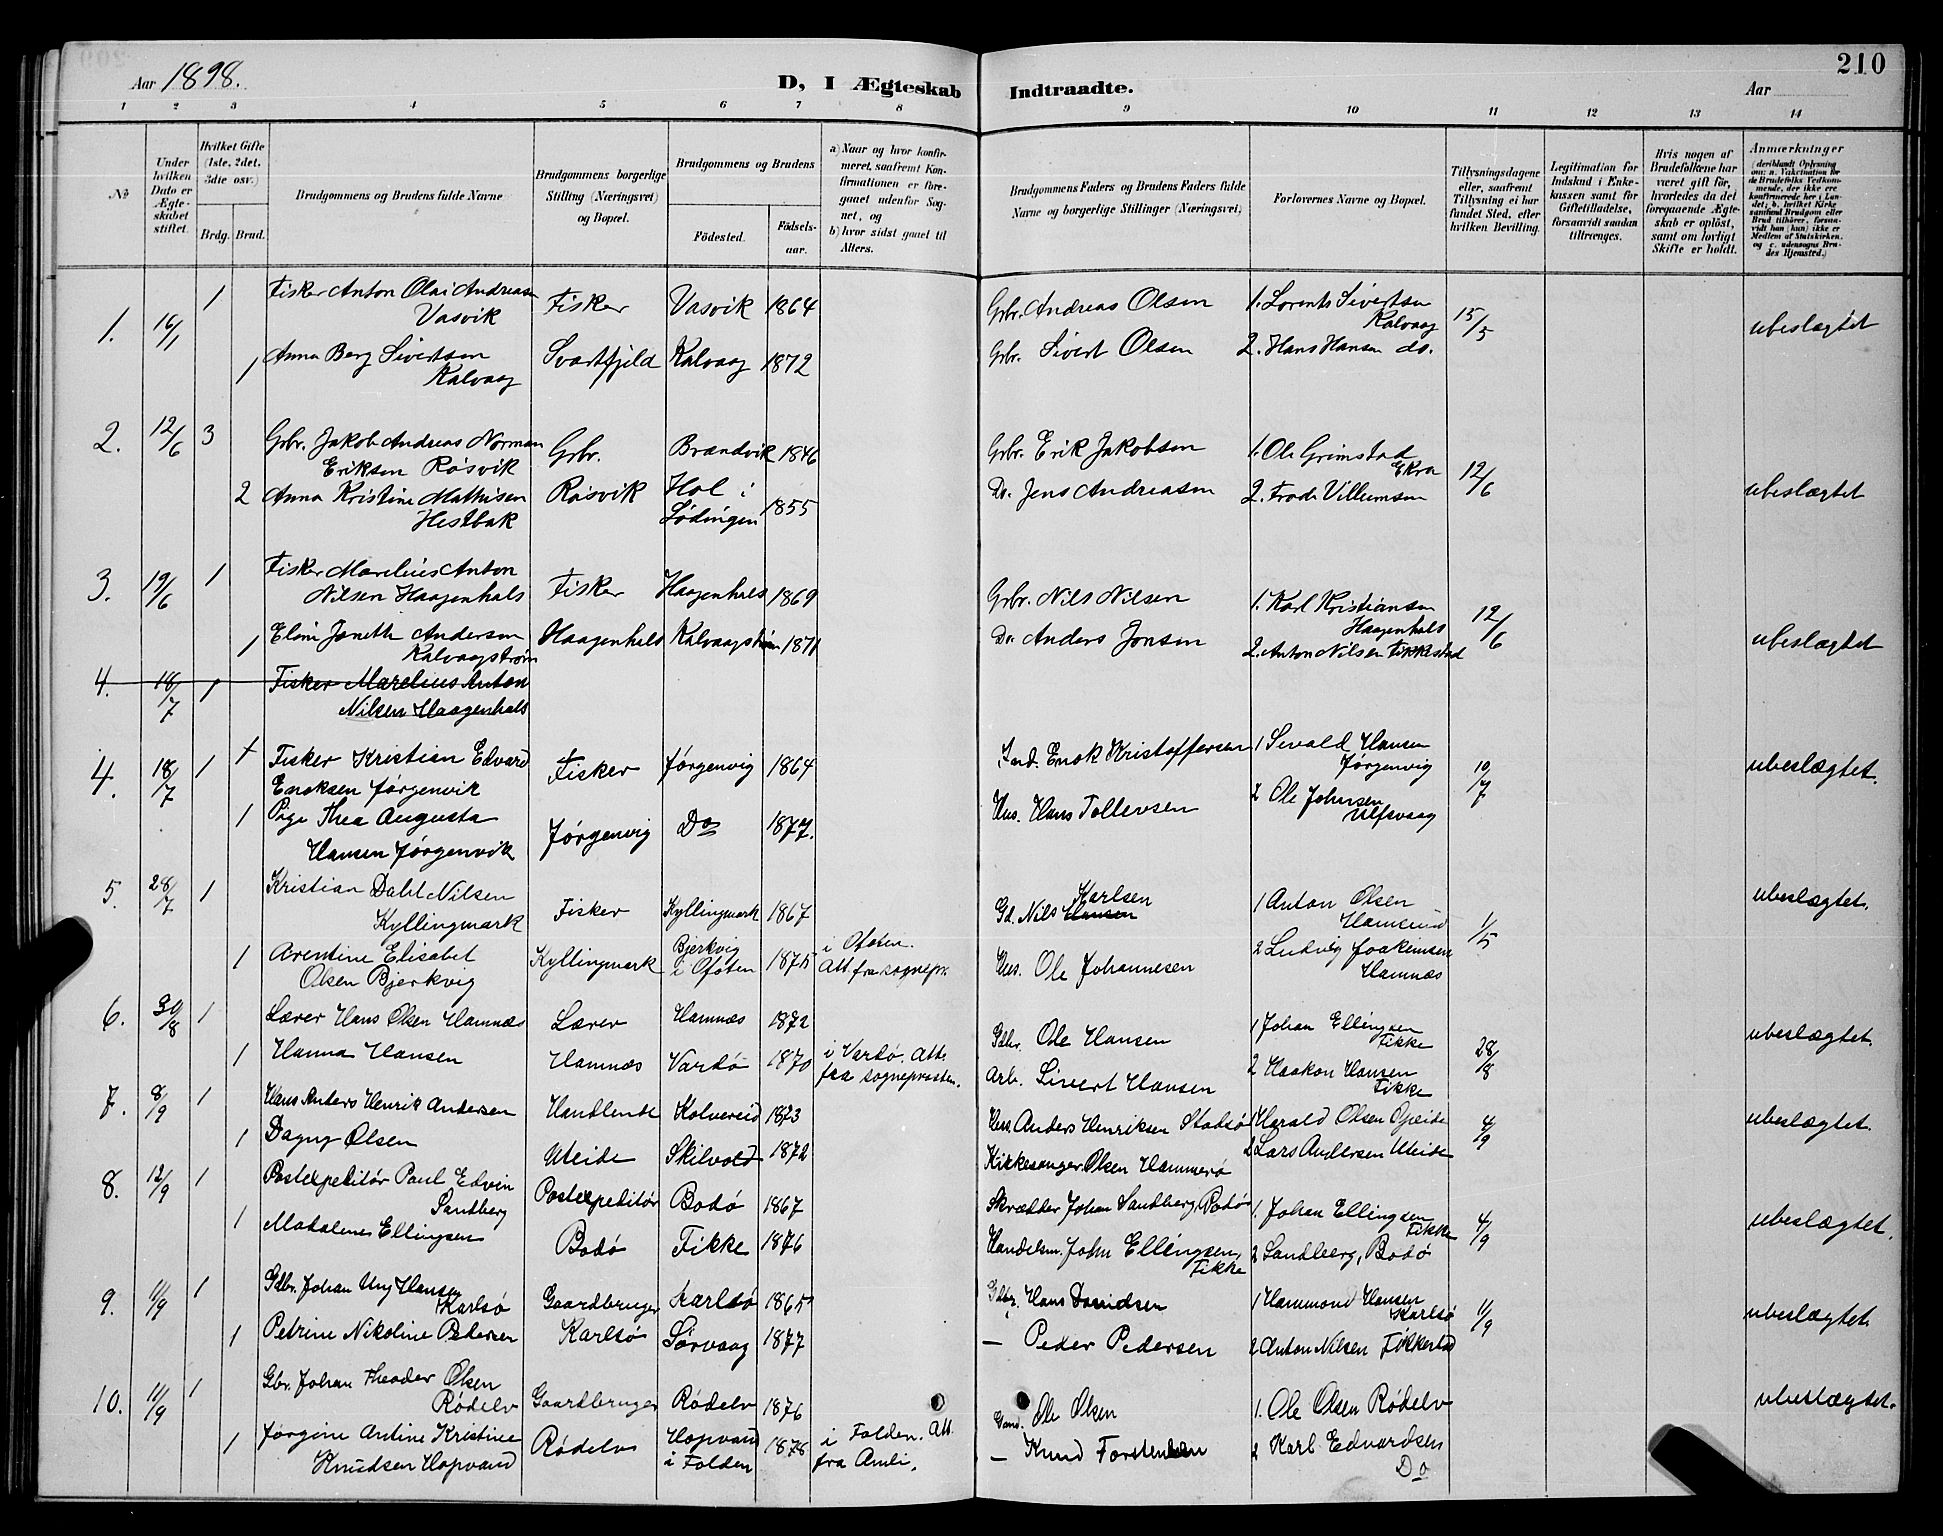 Aar 1898.
D, I Ægteskab Indtraadte.
Aar
210
1 2 3 4 5 6 7 8 9 10 11 12 13 14
No
Under hvilken Dato er Ægteskabet stiftet.
Hvilket Gifte (1ste, 2det, 3die osv.)
Brdg. Brud.
Brudgommens og Brudens fulde Navne
Brudgommens borgerlige Stilling (Næringsvei) og Bopæl.
Brudgommens og Brudens
Fødested.
Fødselsaar.
a) Naar og hvor konfirmeret, saafremt Konfirmationen er foregaaet udenfor Sognet, og
b) hvor sidst gaaet til Alters.
Brudgommens Faders og Brudens Faders fulde Navne og borgerlige Stillinger (Næringsvei)
Forlovernes Navne og Bopæl.
Tillysningsdagene eller, saafremt Tillysning ei har fundet Sted, efter hvilken Bevilling.
Legitimation for Indskud i Enkekassen samt for Giftetilladelse, forsaavidt saadan tiltrænges.
Hvis nogen af Brudefolkene har været gift før, hvorledes da det foregaaende Ægteskab er opløst, samt om lovligt Skifte er holdt.
Anmærkninger
(deriblandt Oplysning om: a. Vakcination for de Brudefolks Vedkommende, der ikke ere konfirmerede her i Landet; b. hvilket Kirkesamfund Brudgom eller Brud tilhører, forsaavidt han (hun) ikke er Medlem af Statskirken, og c. udensogns Brudes Hjemsted.)
1. 16/1 1 Fisker Anton Olai Andreasen Fisker Vasvik 1864 Grbr. Andreas Olsen 1. Lorents Sivertsen 15/5 ubeslægtet
Vasvik Kalvaag
1 Anna Berg Sivertsen Svartfjeld Kalvaag 1872 Grbr. Sivert Olsen 2. Hans Hansen do.
Kalvaag
2. 12/6 3 Grbr. Jakob Andreas Norman Grbr. Brandvik 1846 Grbr. Erik Jakobsen 1. Ole Grimstad 12/6 ubeslægtet
Eriksen Røsvik Ekra
2 Anna Kristine Mathisen Røsvik Hol i 1855 Do. Jens Andreasen 2. Frode Villumsen
Hestbak Lødingen
3. 19/6 1 Fisker Marelius Anton Fisker Haagenhals 1869 Grbr. Nils Nilsen 1. Karl Kristiansen 12/6 ubeslægtet
Nilsen Haagenhals Haagenhals
1 Elen Janeth Andersen Haagenhals Kalvaagstrøm 1871 Do. Anders Jonsen 2. Anton Nilsen Fikkestad
Kalvaagstrøm
4. 18/7 1 Fisker Marelius Anton
Nilsen Haagenhals
4. 18/7 1 + Fisker Kristian Edvard Fisker Jørgenvig 1864 Ind. Enok Kristoffersen 1 Sevald Hansen 10/7 ubeslægtet.
Enoksen Jørgenvik Jørgenvig
1 Pige Thea Augusta Jørgenvig Do 1877. Hus. Hans Tollevsen 2 Ole Johnsen
Hansen Jørgenvik Ulfsvaag
5. 28/7 1 Kristian Dahl Nilsen Fisker Kyllingmark 1867 Gd. Nils Hansen Karlsen 1 Anton Olsen 1/5 ubeslægtet.
Kyllingmark Hamsund
1 Arentine Elisabet Kyllingmark Bjerkvig 1875 i Ofoten. Hus. Ole Johannesen 2 Ludvig Joakimsen
Olsen Bjerkvig i Ofoten Att. fra sognepr. Hamnæs
6. 30/8 1 Lærer Hans Olsen Hamnæs Lærer Hamnæs 1872 Gdbr. Ole Hansen 1 Johan Ellingsen 28/8 ubeslægtet.
Fikke
1 Hanna Hansen Hamnæs Vardø 1870 i Vardø. Att. Arb. Sivert Hansen 2 Haakon Hansen
fra sognepresten. Fikke
7. 8/9 1 Hans Anders Henrik Andersen Handlende Kolvereid 1873 Hus. Anders Henriksen Stadsø 1 Harald Olsen Opeide 4/9 ubeslægtet.
1 Dagny Olsen Uteide Skilvold 1872 Kirkesanger Olsen Hammerø 2 Lars Andersen Uteide
8. 12/9 1 Postexpeditør Paul Edvin Postexpeditør Bodø 1867 Skrædder Johan Sandberg, Bodø 1. Johan Ellingsen 4/9 ubeslægtet.
Sandberg Fikke
1 Madalene Ellingsen Bodø Fikke 1876 Handelsm. John Ellingsen, 2 Sandberg, Bodø
Fikke
9. 11/9 1 Gdbr. Johan Urj Hansen Gaardbruger Karlsø 1865 Gdbr. Hans Davidsen 1 Hammond Hansen 11/9 ubeslægtet.
Karlsø Karlsø
1 Petrine Nikoline Pedersen Karlsø Sørvaag 1877 — Peder Pedersen 2 Anton Nilsen Fikkestad
10. 11/9 1 Gbr. Johan Theodor Olsen Gaardbruger Rødelv 1876 Gaard. Ole Olsen 1. Ole Olsen Rødelv ubeslægtet.
Rødelv
1 Jørgine Antine Kristine Rødelv Hopvand 1878 i Folden. Att. — Knud Forstensen 2 Karl Edvardsen
Knudsen Hopvand i Folden fra Do